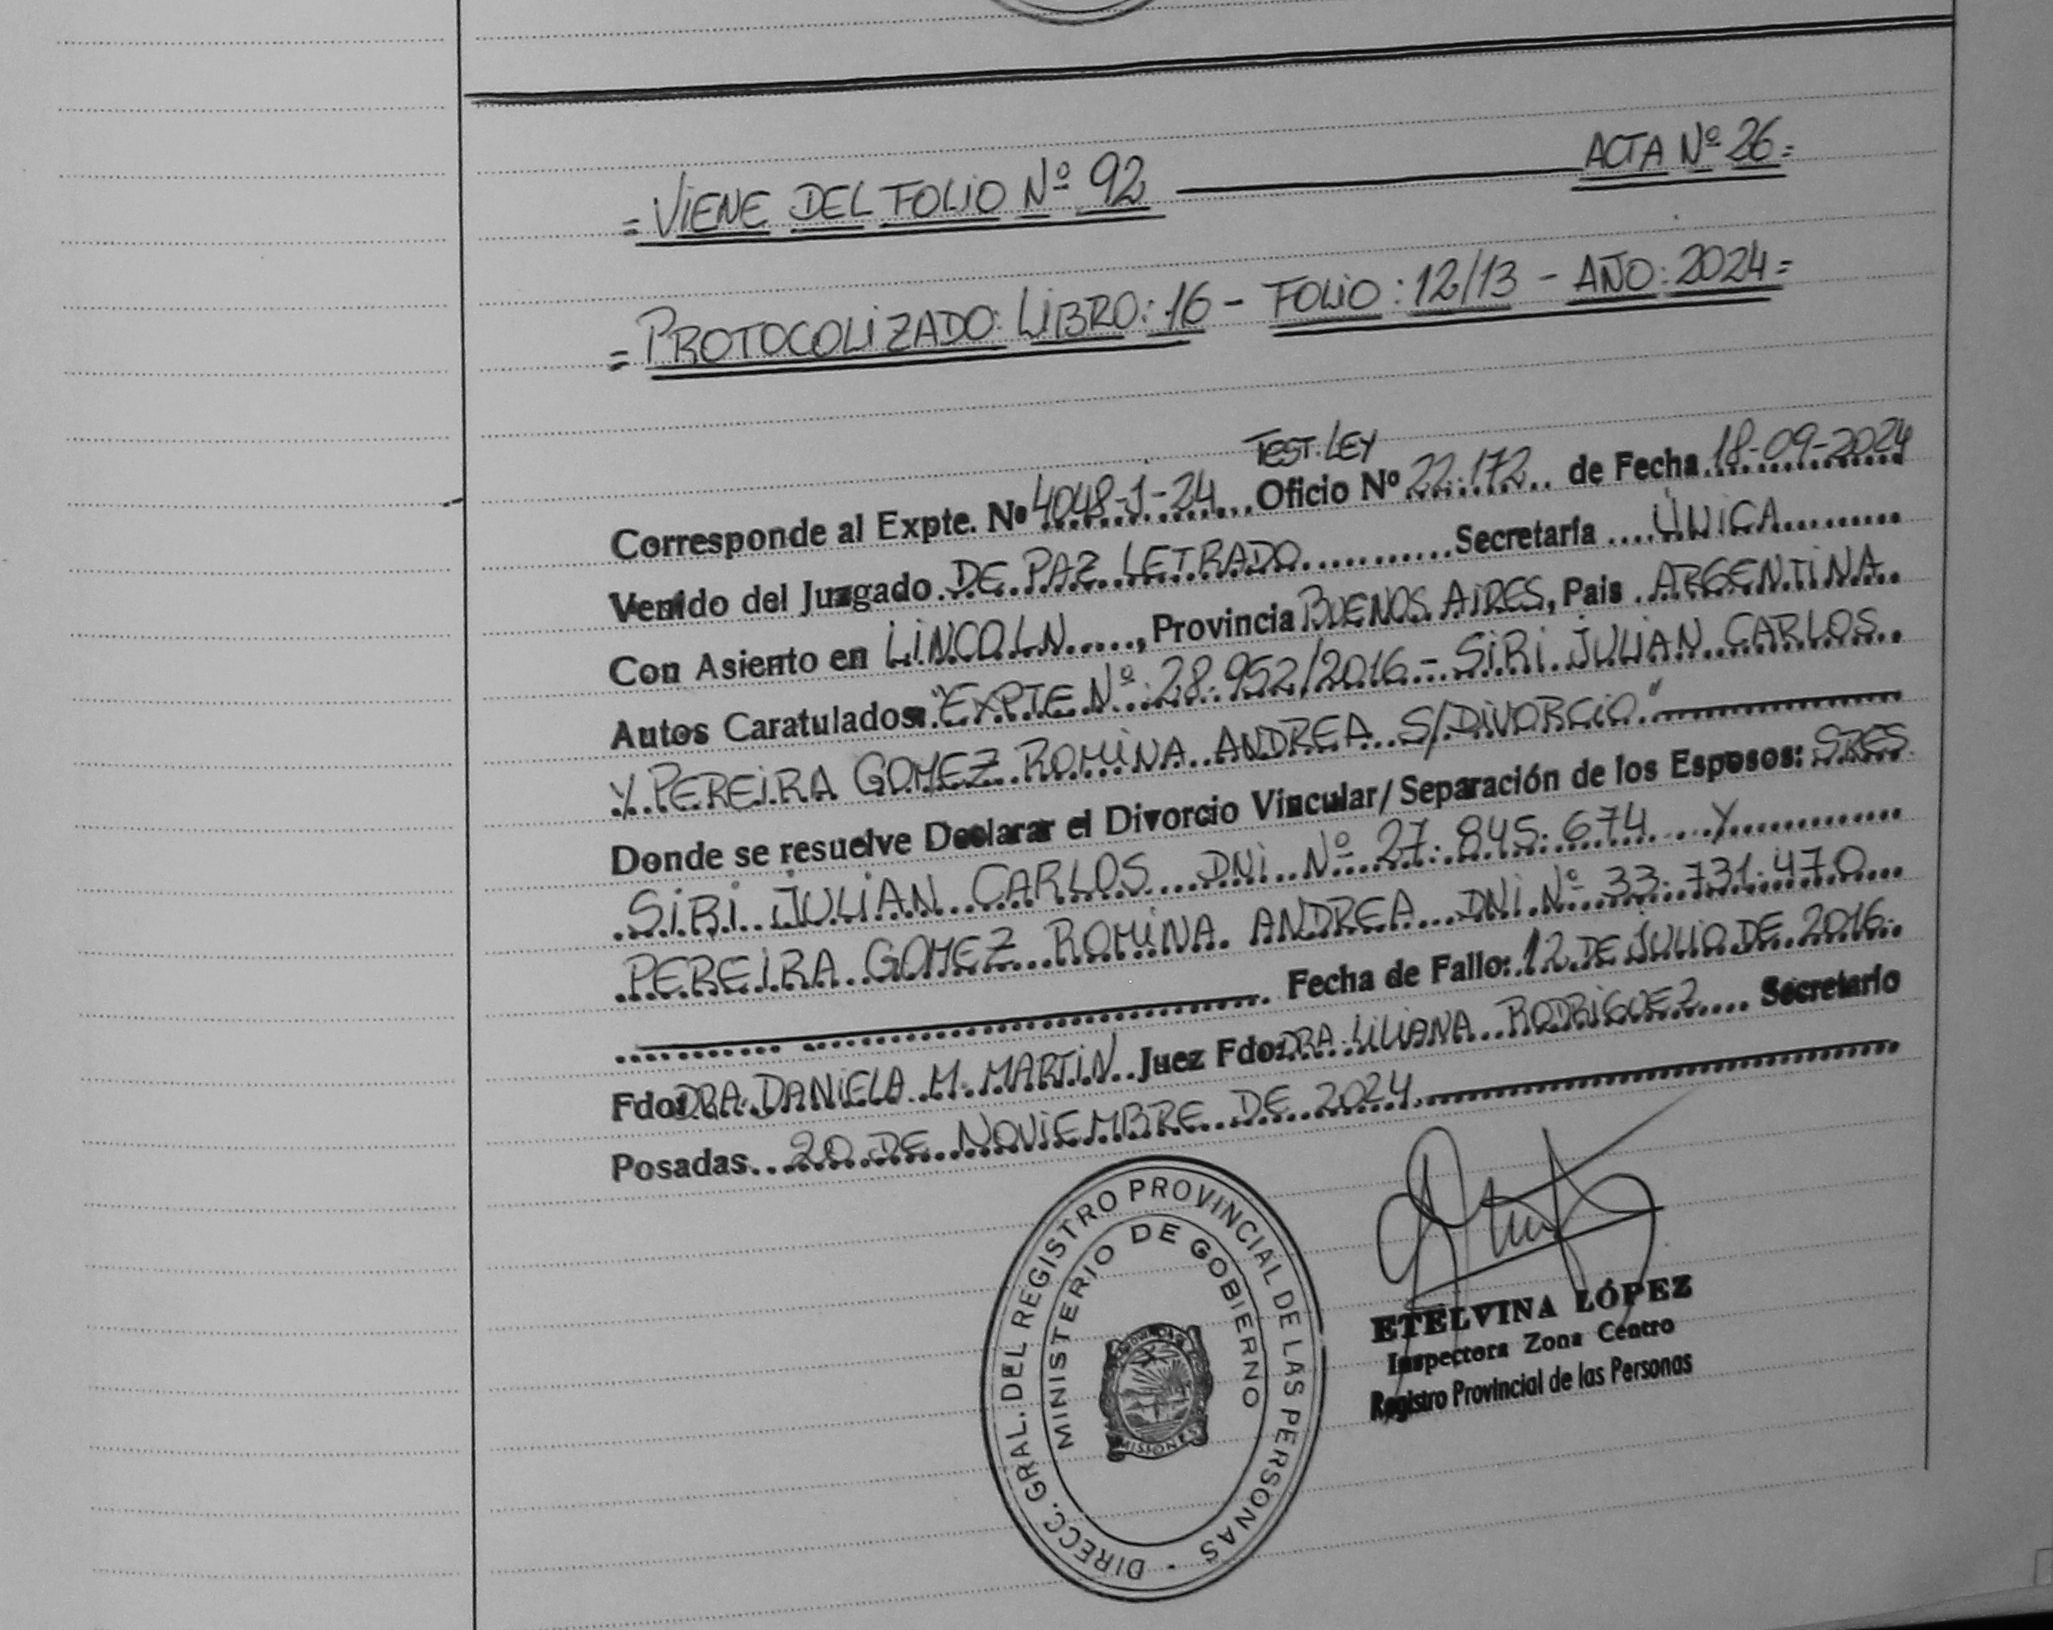 =VIENE DEL FOLIO Nº 92 ACTA Nº 26=
=PROTOCOLIZADO: LIBRO: 16 - FOLIO: 12/13 - AÑO: 2024=
TEST. LEY
Corresponde al Expte. Nº 4048-J-24 Oficio Nº 22.172 de Fecha 18-09-2024
Venido del Juzgado DE PAZ LETRADO Secretaría ÚNICA
Con Asiento en LINCOLN, Provincia BUENOS AIRES, Pais ARGENTINA
Autos Caratulados: "EXPTE Nº 28.952/2016 - SIRI JULIAN CARLOS
Y PEREIRA GOMEZ ROMINA ANDREA S/DIVORCIO"
Donde se resuelve Declarar el Divorcio Vincular/Separación de los Esposos: SRES
SIRI JULIAN CARLOS DNI Nº 27.845.674 Y
PEREIRA GOMEZ ROMINA ANDREA DNI Nº 33.731.470
Fecha de Fallo: 12 DE JULIO DE 2016.
Fdo: DRA. DANIELA M. MARTIN Juez Fdo: DRA. LILIANA RODRIGUEZ Secretario
Posadas 20 DE NOVIEMBRE DE 2024
DIRECC. GRAL. DEL REGISTRO PROVINCIAL DE LAS PERSONAS -
MINISTERIO DE GOBIERNO
MISIONES
ETELVINA LÓPEZ
Inspectora Zona Centro
Registro Provincial de las Personas